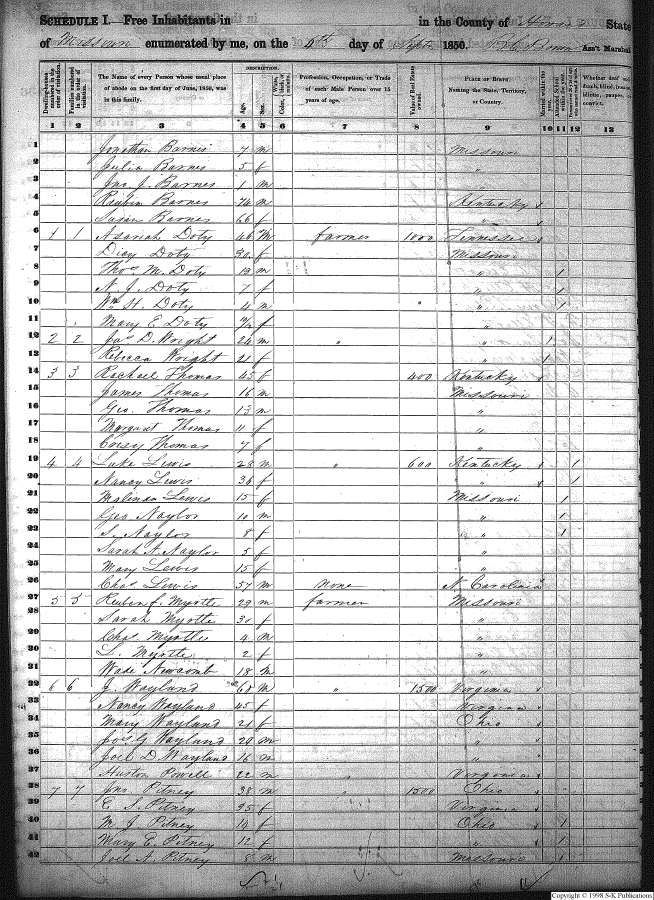 SCHEDULE I.—Free Inhabitants in in the County of Howard State
of Missouri enumerated by me, on the 6th day of Sept 1850. Ass't Marshal
Dwelling-houses numbered in the order of visitation.
Families numbered in the order of visitation.
The Name of every Person whose usual place of abode on the first day of June, 1850, was in this family.
DESCRIPTION.
Age.
Sex.
White, black, or mulatto.
Color,
Profession, Occupation, or Trade of each Male Person over 15 years of age.
Value of Real Estate owned.
PLACE OF BIRTH.
Naming the State, Territory, or Country.
Married within the year.
Attended School within the year.
Whether deaf and dumb, blind, insane, idiotic, pauper, or convict.
1 2 3 4 5 6 7 8 9 10 11 12 13
1 Jonathan Barnes 7 m Missouri
2 Julia Barnes 5 f "
3 Jno. J. Barnes 1 m "
4 Reubin Barnes 74 m Kentucky
5 Susan Barnes 66 f "
6 1 1 Asariah Doty 46 M farmer 1000 Tennessee
7 Dicy Doty 30 f Missouri
8 Thos. M. Doty 19 m " 1
9 N. J. Doty 7 f " 1
10 Wm H. Doty 4 m " 1
11 Mary E. Doty f "
12 2 2 Jas D. Wright 24 m " " 1
13 Rebecca Wright 21 f " 1
14 3 3 Rachael Thomas 43 f 400 Kentucky
15 James Thomas 16 m Missouri
16 Geo. Thomas 13 m "
17 Margaret Thomas 11 f "
18 Thomas 7 f "
19 4 4 Luke Lewis 28 m " 600 Kentucky 1
20 Nancy Lewis 36 f " 1
21 Malinda Lewis 15 f Missouri 1
22 Geo Naylor 10 m " 1
23 S. Naylor 8 f " 1
24 Sarah A. Naylor 5 f "
25 Mary Lewis 15 f "
26 Chas. Lewis 57 m None N. Carolina
27 5 5 Reuben f. Myrtle 29 m farmer Missouri
28 Sarah Myrtle 30 f "
29 Chas. Myrtle 4 m "
30 L. Myrtle 2 f "
31 Wade Newcomb 18 m "
32 6 6 J. Wayland 68 m " 1500 Virginia
33 Nancy Wayland 45 f Virginia
34 Mary Wayland 21 f Ohio
35 Jos. G Wayland 20 m "
36 Joel D. Wayland 16 m "
37 Huston Powell 22 m " Virginia
38 7 7 Jno. Pitney 38 m " 1500 Ohio
39 E. S. Pitney 35 f Virginia
40 M. J. Pitney 14 f Ohio 1
41 Mary E. Pitney 12 f " 1
42 Joel A. Pitney 8 m Missouri 1
Copyright © 1998 S-K Publications